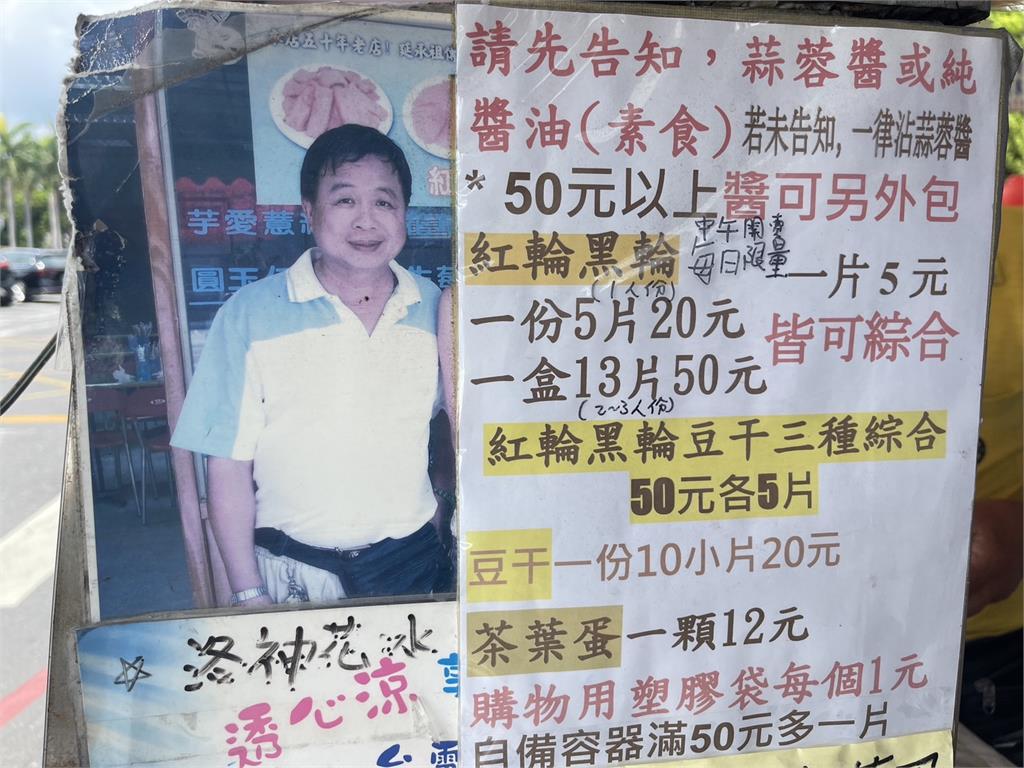 本店五十年老店!延承祖傳
紅
芋愛薏
圓玉
請先告知，蒜蓉醬或純
醬油(素食)若未告知, 一律沾蒜蓉醬
* 50元以上醬可另外包
紅輪黑輪 中午開賣 每日限量 一片5元
(1人份)
一份5片20元 皆可綜合
一盒13片50元
(2~3人份)
紅輪黑輪豆干三種綜合
50元各5片
豆干一份10小片20元
茶葉蛋一顆12元
購物用塑膠袋每個1元
自備容器滿50元多一片
☆洛神花冰
透心涼